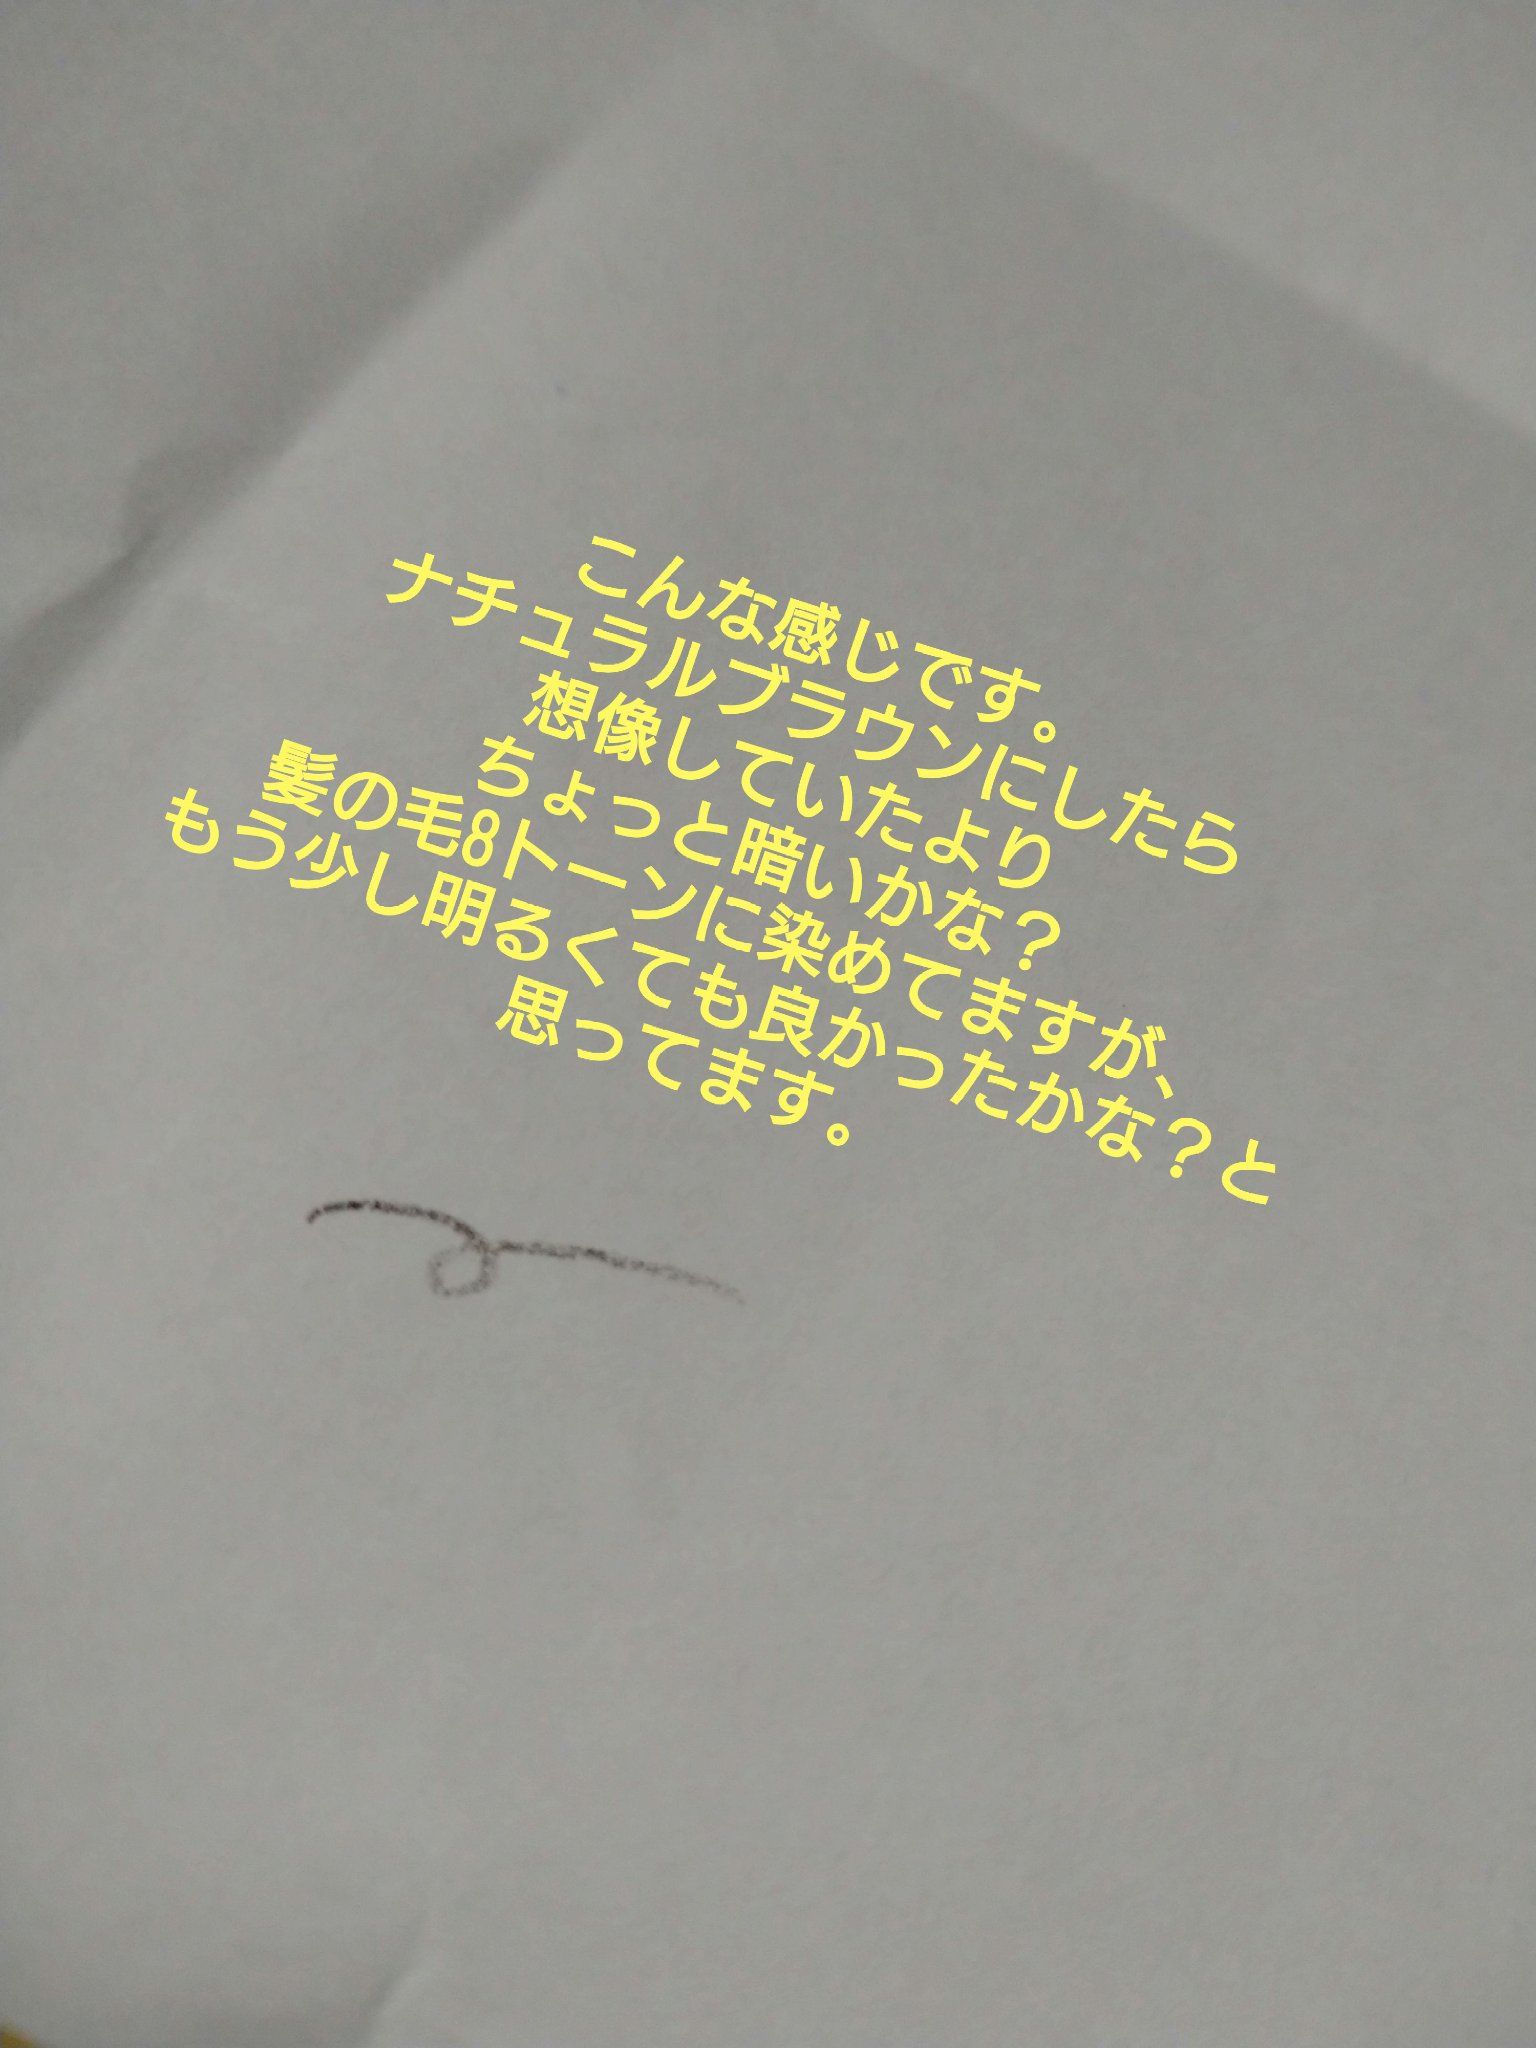 こんな感じです。
ナチュラルブラウンにしたら
想像していたより
ちょっと暗いかな？
髪の毛8トーンに染めてますが、
もう少し明るくても良かったかな？と
思ってます。